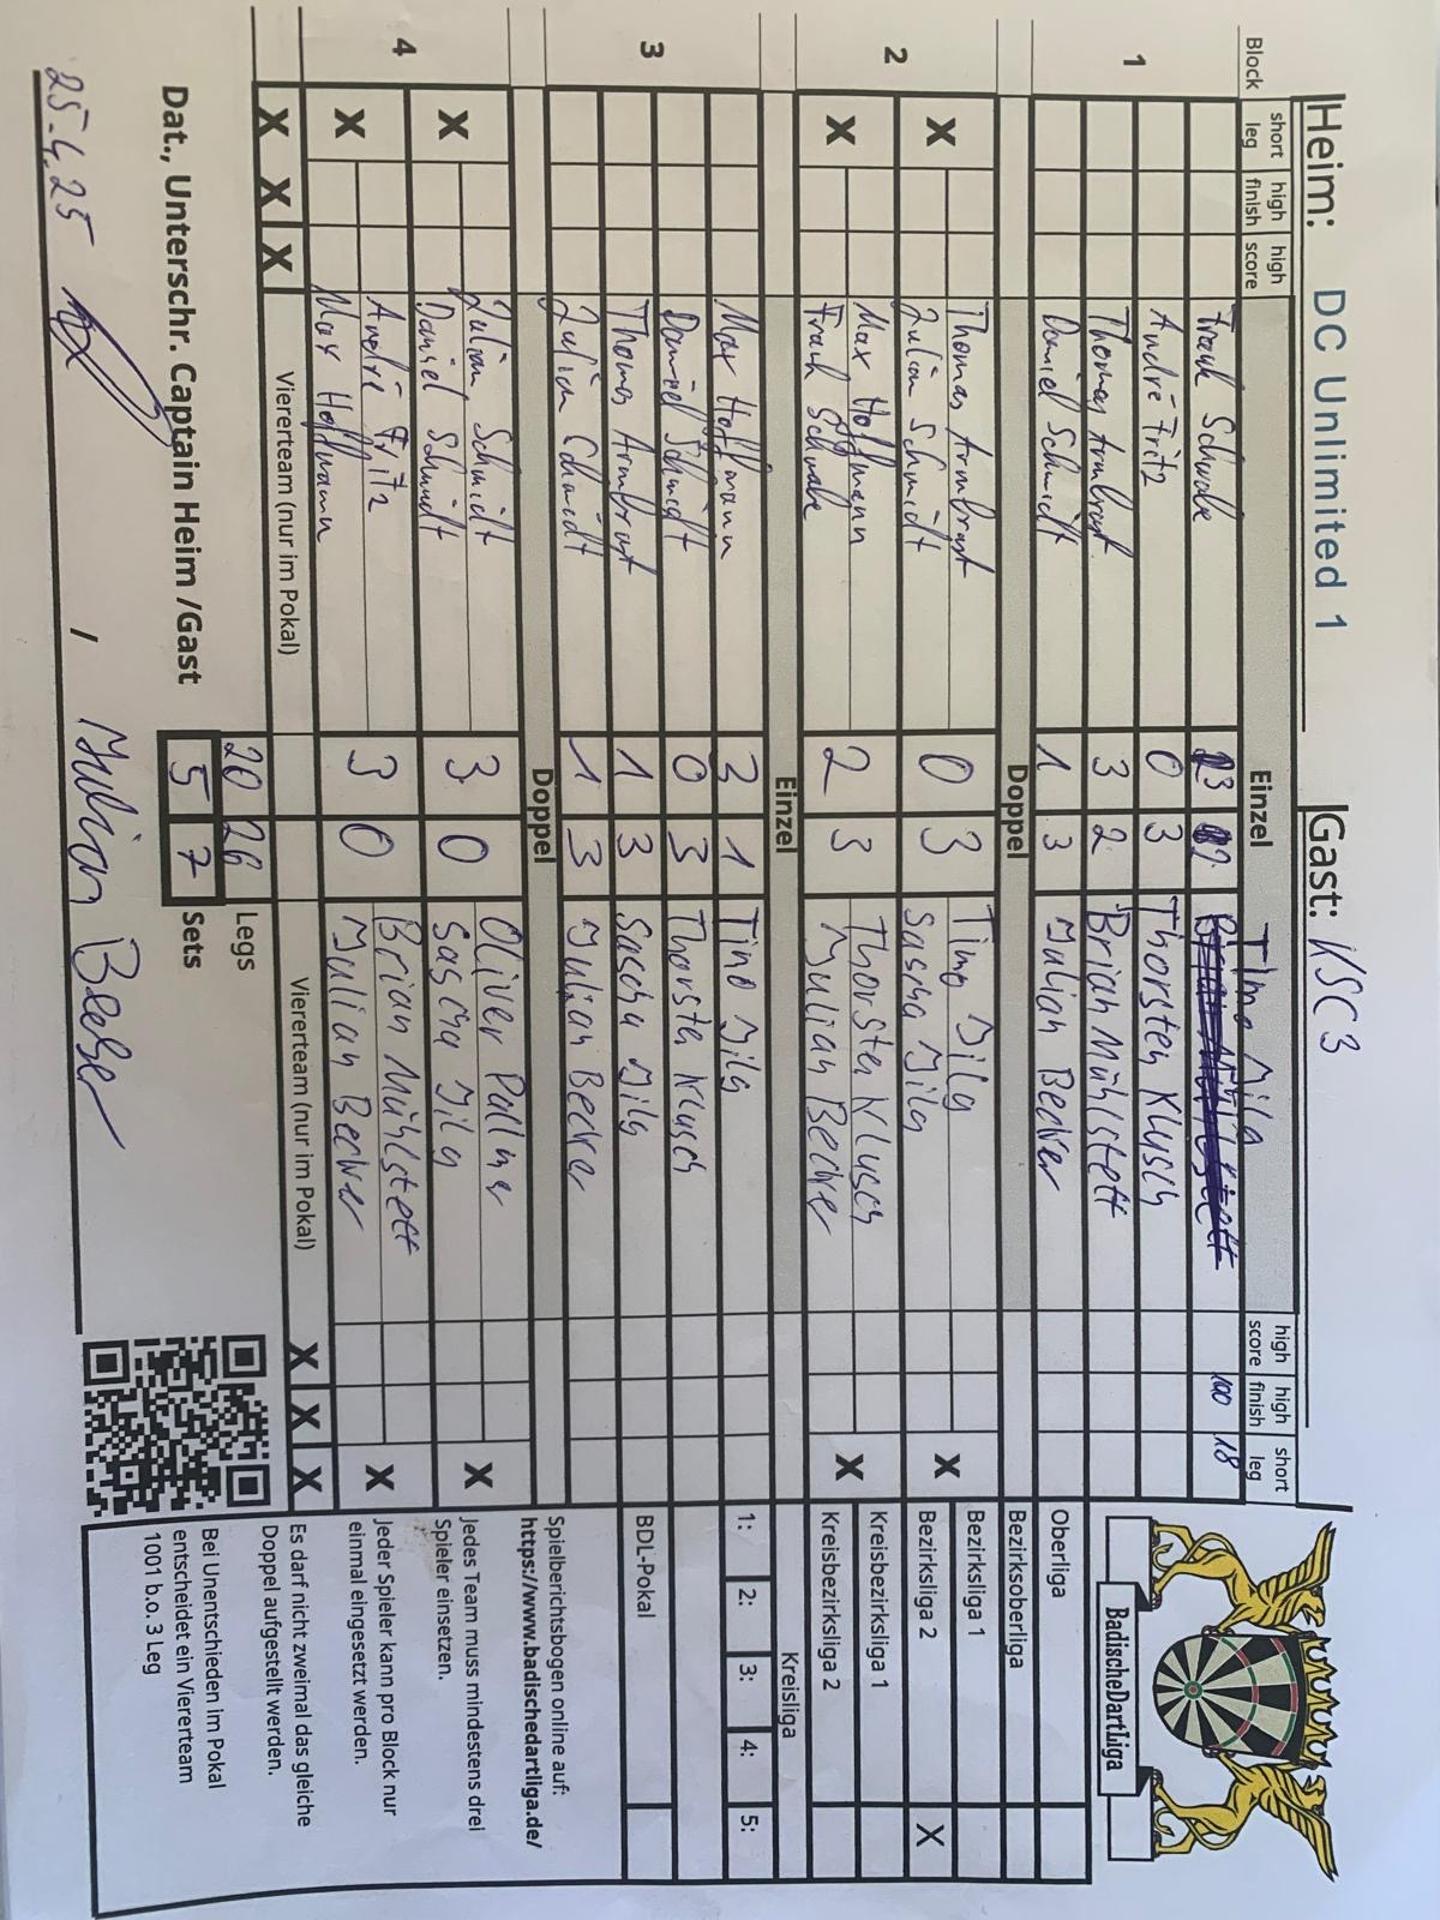 Heim: DC Unlimited 1 Gast: KSC 3
Block short leg high finish high score Einzel high score high finish short leg
1 Frank Schwabe 3 Timo Jilg 100 18
André Fritz 0 3 Thorsten Klusch
Thomas Armbrust 3 2 Brian Mühlstett
Daniel Schmidt 1 3 Julian Becker
Doppel
2 X Thomas Armbrust 0 3 Timo Jilg X
Julian Schmidt Sascha Jilg
X Max Hoffmann 2 3 Thorsten Klusch X
Frank Schwabe Julian Becker
Einzel
3 Max Hoffmann 3 1 Timo Jilg
Daniel Schmidt 0 3 Thorsten Klusch
Thomas Armbrust 1 3 Sascha Jilg
Julian Schmidt 1 3 Julian Becker
Doppel
4 X Julian Schmidt 3 0 Oliver Palme X
Daniel Schmidt Sascha Jilg
X André Fritz 3 0 Brian Mühlstett X
Max Hoffmann Julian Becker
X X X Viererteam (nur im Pokal) Viererteam (nur im Pokal) X X X
20 26 Legs
Dat., Unterschr. Captain Heim /Gast 5 7 Sets
25.4.25 / Julian Becker
BadischeDartLiga
Oberliga
Bezirksoberliga
Bezirksliga 1
Bezirksliga 2 X
Kreisbezirksliga 1
Kreisbezirksliga 2
Kreisliga
1: 2: 3: 4: 5:
BDL-Pokal
Spielberichtsbogen online auf:
https://www.badischedartliga.de/
Jedes Team muss mindestens drei
Spieler einsetzen.
Jeder Spieler kann pro Block nur
einmal eingesetzt werden.
Es darf nicht zweimal das gleiche
Doppel aufgestellt werden.
Bei Unentschieden im Pokal
entscheidet ein Viererteam
1001 b.o. 3 Leg